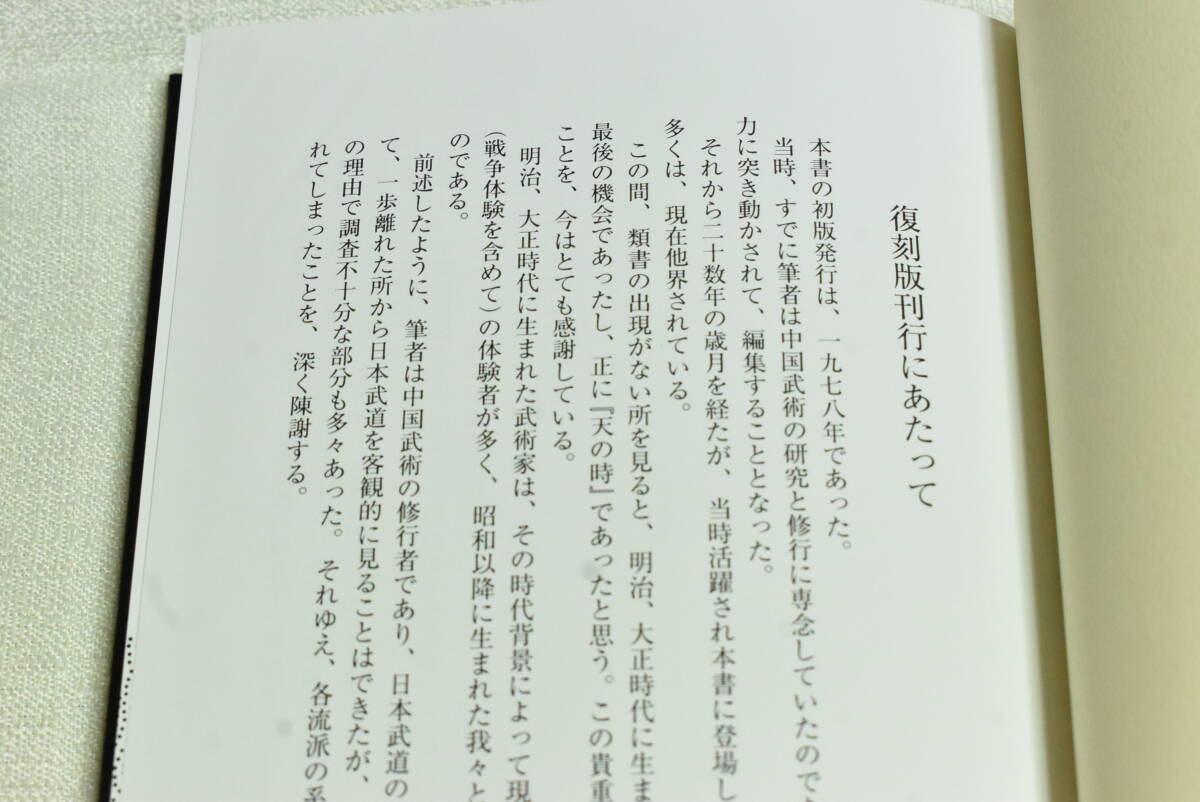 復刻版刊行にあたって
本書の初版発行は、一九七八年であった。
当時、すでに筆者は中国武術の研究と修行に専念していたので
力に突き動かされて、編集することとなった。
それから二十数年の歳月を経たが、当時活躍され本書に登場し
多くは、現在他界されている。
この間、類書の出現がない所を見ると、明治、大正時代に生ま
最後の機会であったし、正に『天の時』であったと思う。この貴重
ことを、今はとても感謝している。
明治、大正時代に生まれた武術家は、その時代背景によって現
(戦争体験を含めて)の体験者が多く、昭和以降に生まれた我々と
のである。
前述したように、筆者は中国武術の修行者であり、日本武道の
て、一歩離れた所から日本武道を客観的に見ることはできたが、
の理由で調査不十分な部分も多々あった。それゆえ、各流派の系
れてしまったことを、深く陳謝する。